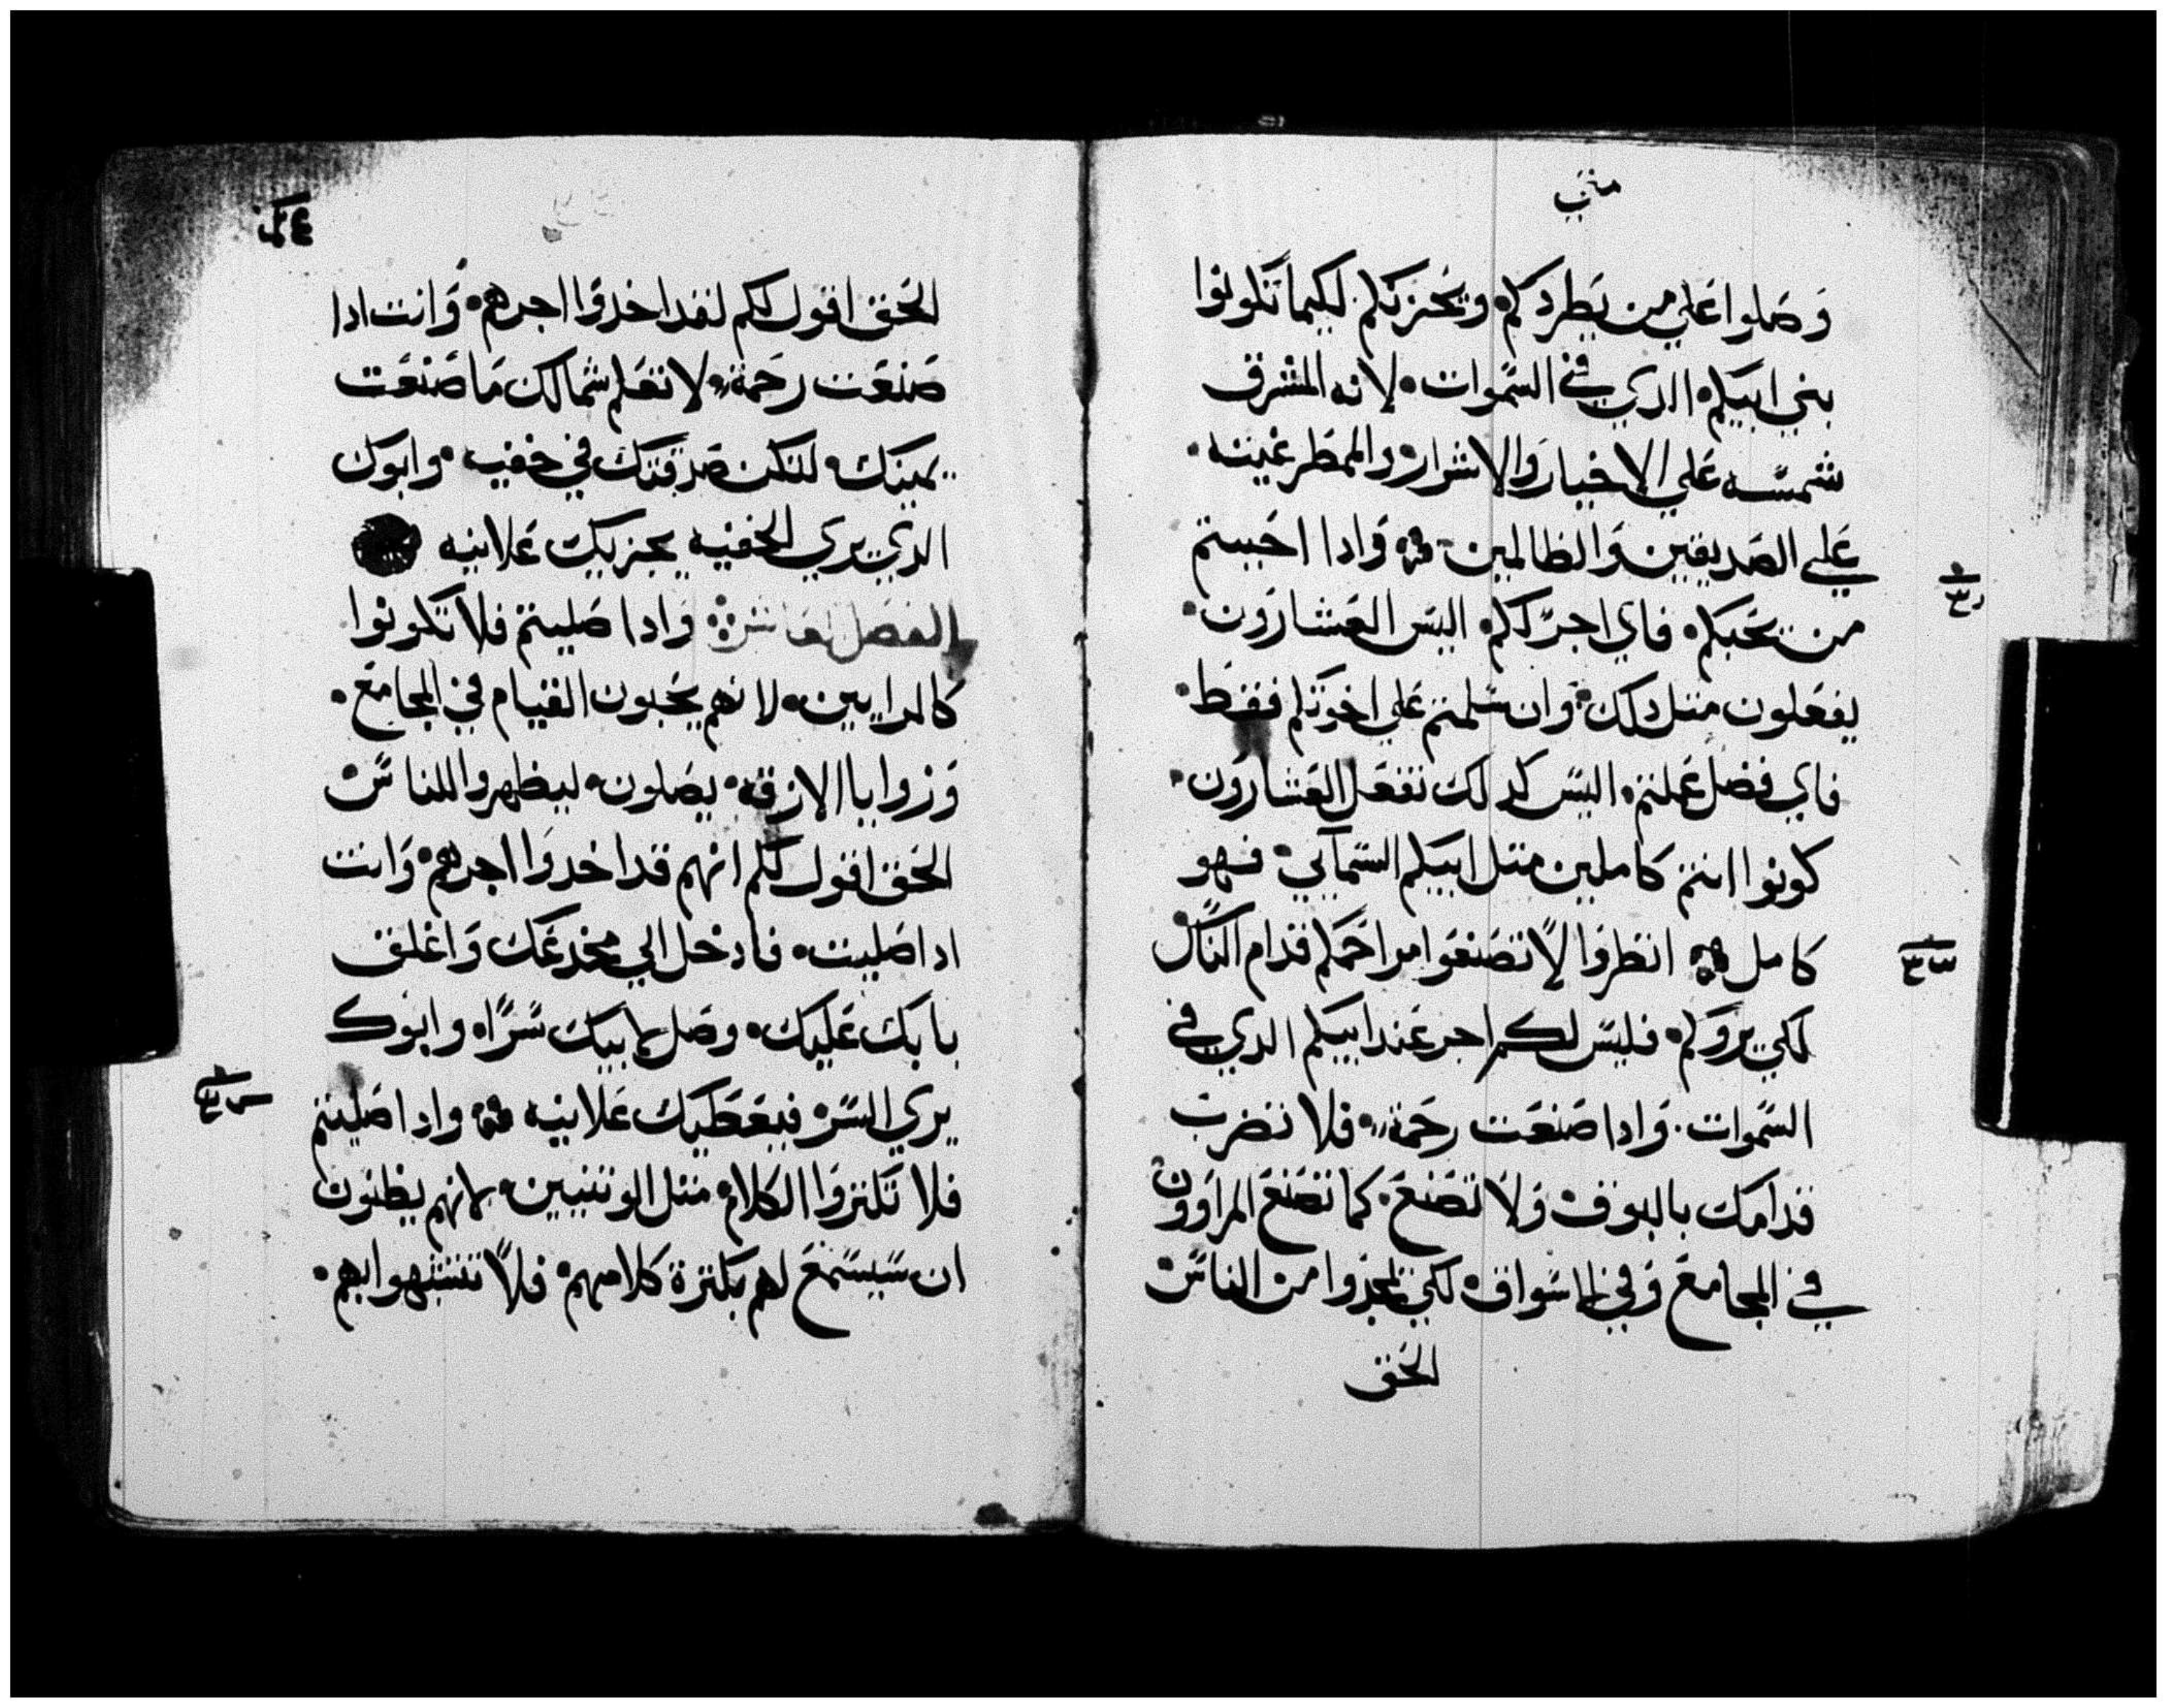 متي
وصلوا علي من يطردكم ويحزنكم لكيما تكونوا
بني ابيكم الدي في السموات لانه المشرق
شمسه علي الاخيار والاشرار والممطر غيته
علي الصديقين والظالمين وادا احببتم
من يحبكم فاي اجر لكم اليس العشارون
يفعلون متل دلك وان سلمتم علي اخوتكم فقط
فاي فضل عملتم اليس كدلك تفعل العشارون
كونوا انتم كاملين متل ابيكم السمآيي فهو
كامل انظروا لا تصنعوا مراحمكم قدام الناس
لكي يروكم فليس لكم اجر عند ابيكم الدي في
السموات وادا صنعت رحمة فلا تضرب
قدامك بالبوق ولا تصنع كما تصنع المراوون
في المجامع وفي الاسواق لكي يمجدوا من الناس
الحق
الحق اقول لكم لقد اخدوا اجرهم وانت ادا
صنعت رحمة لا تعلم شمالك ما صنعت
يمينك لتكن صدقتك في خفيه وابوك
الدي يري الخفيه يجزيك علانيه
الفصل العاشر وادا صليتم فلا تكونوا
كالمرايين لانهم يحبون القيام في المجامع
وزوايا الازقه يصلون ليظهروا للناس
الحق اقول لكم انهم قد اخدوا اجرهم وانت
ادا صليت فادخل الي مخدعك واغلق
بابك عليك وصل لابيك سرا وابوك
يري السر فيعطيك علانيه وادا صليتم
فلا تكتروا الكلام متل الوتنيين لانهم يظنون
ان سيسمع لهم بكترة كلامهم فلا تتشبهوا بهم